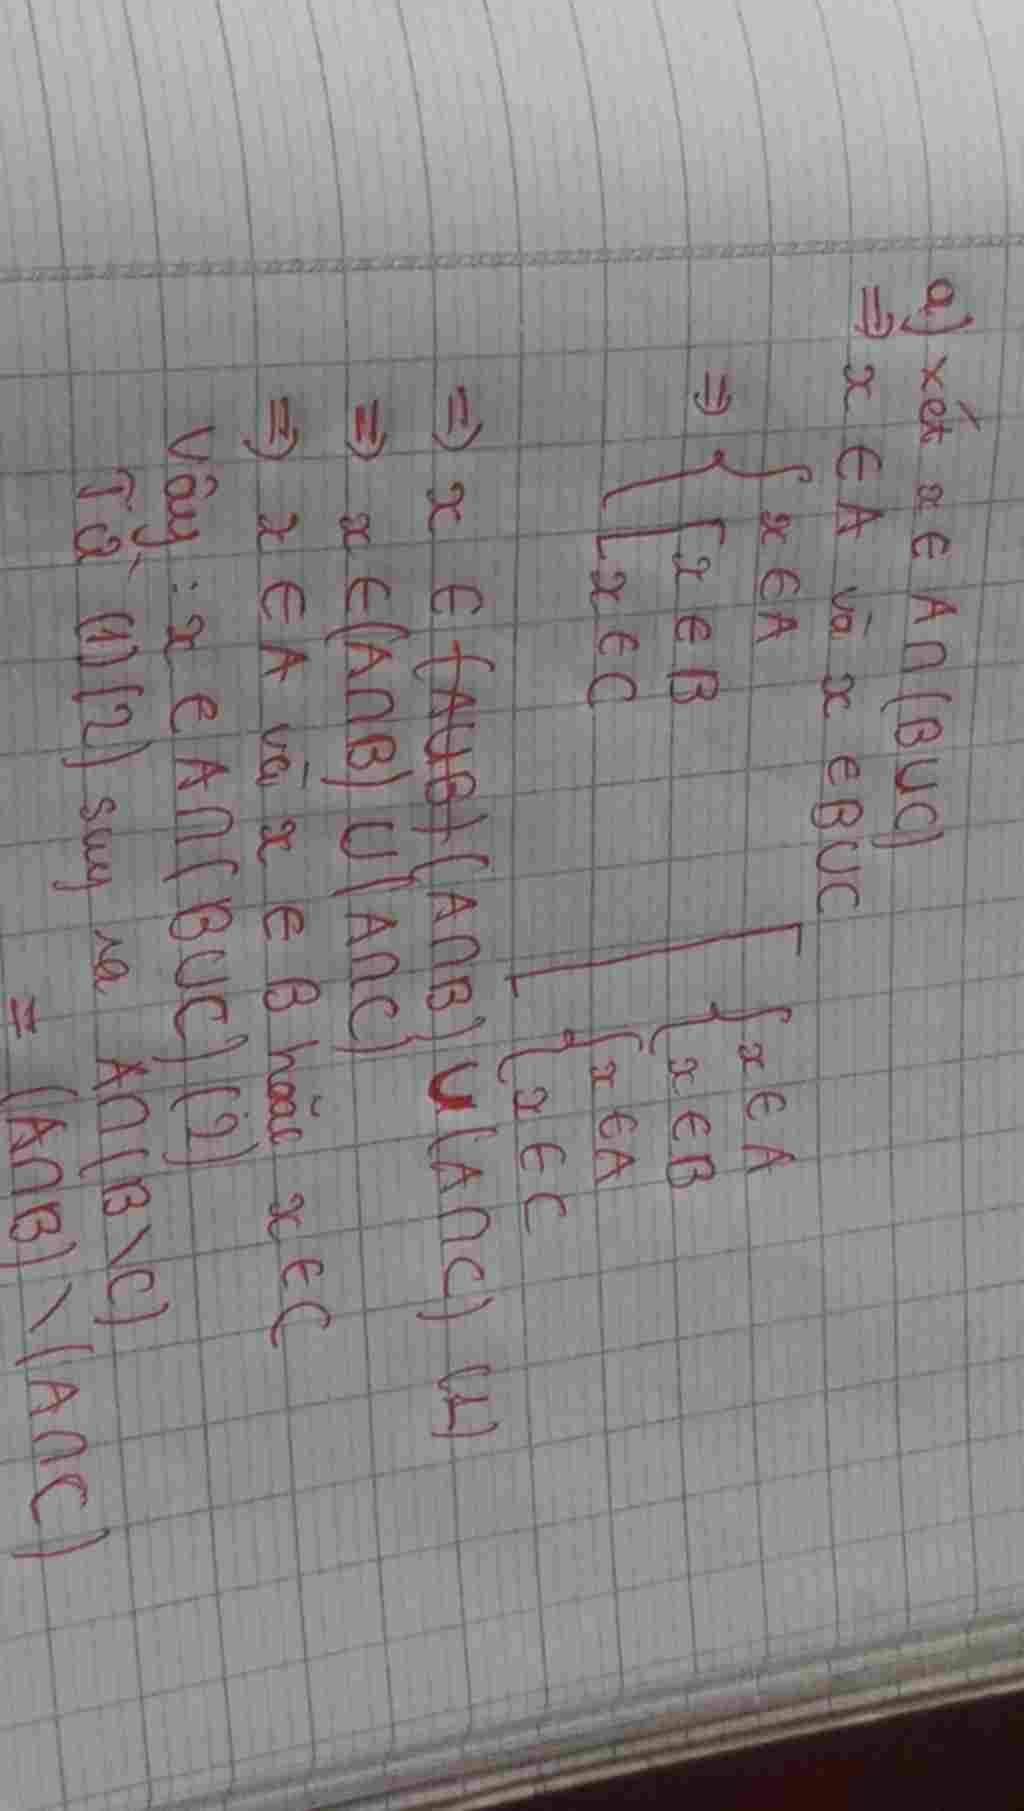 a) xét x ∈ A∩(B∪C)
⇒ x ∈ A và x ∈ B∪C
⇒ { x ∈ A [ x ∈ B x ∈ C
[ { x ∈ A x ∈ B { x ∈ A x ∈ C
⇒ x ∈ (A∪B) (A∩B) ∪ (A∩C) (1)
⇒ x ∈ (A∩B) ∪ (A∩C)
⇒ x ∈ A và x ∈ B hoặc x ∈ C
Vậy : x ∈ A∩(B∪C) (2)
Từ (1) (2) suy ra A∩(B\C)
= (A∩B) \ (A∩C)